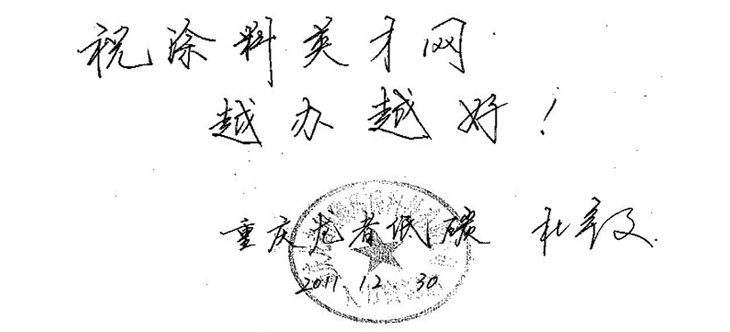 祝涂料英才网
越办越好！
重庆龙者低碳 杜
2011.12.30